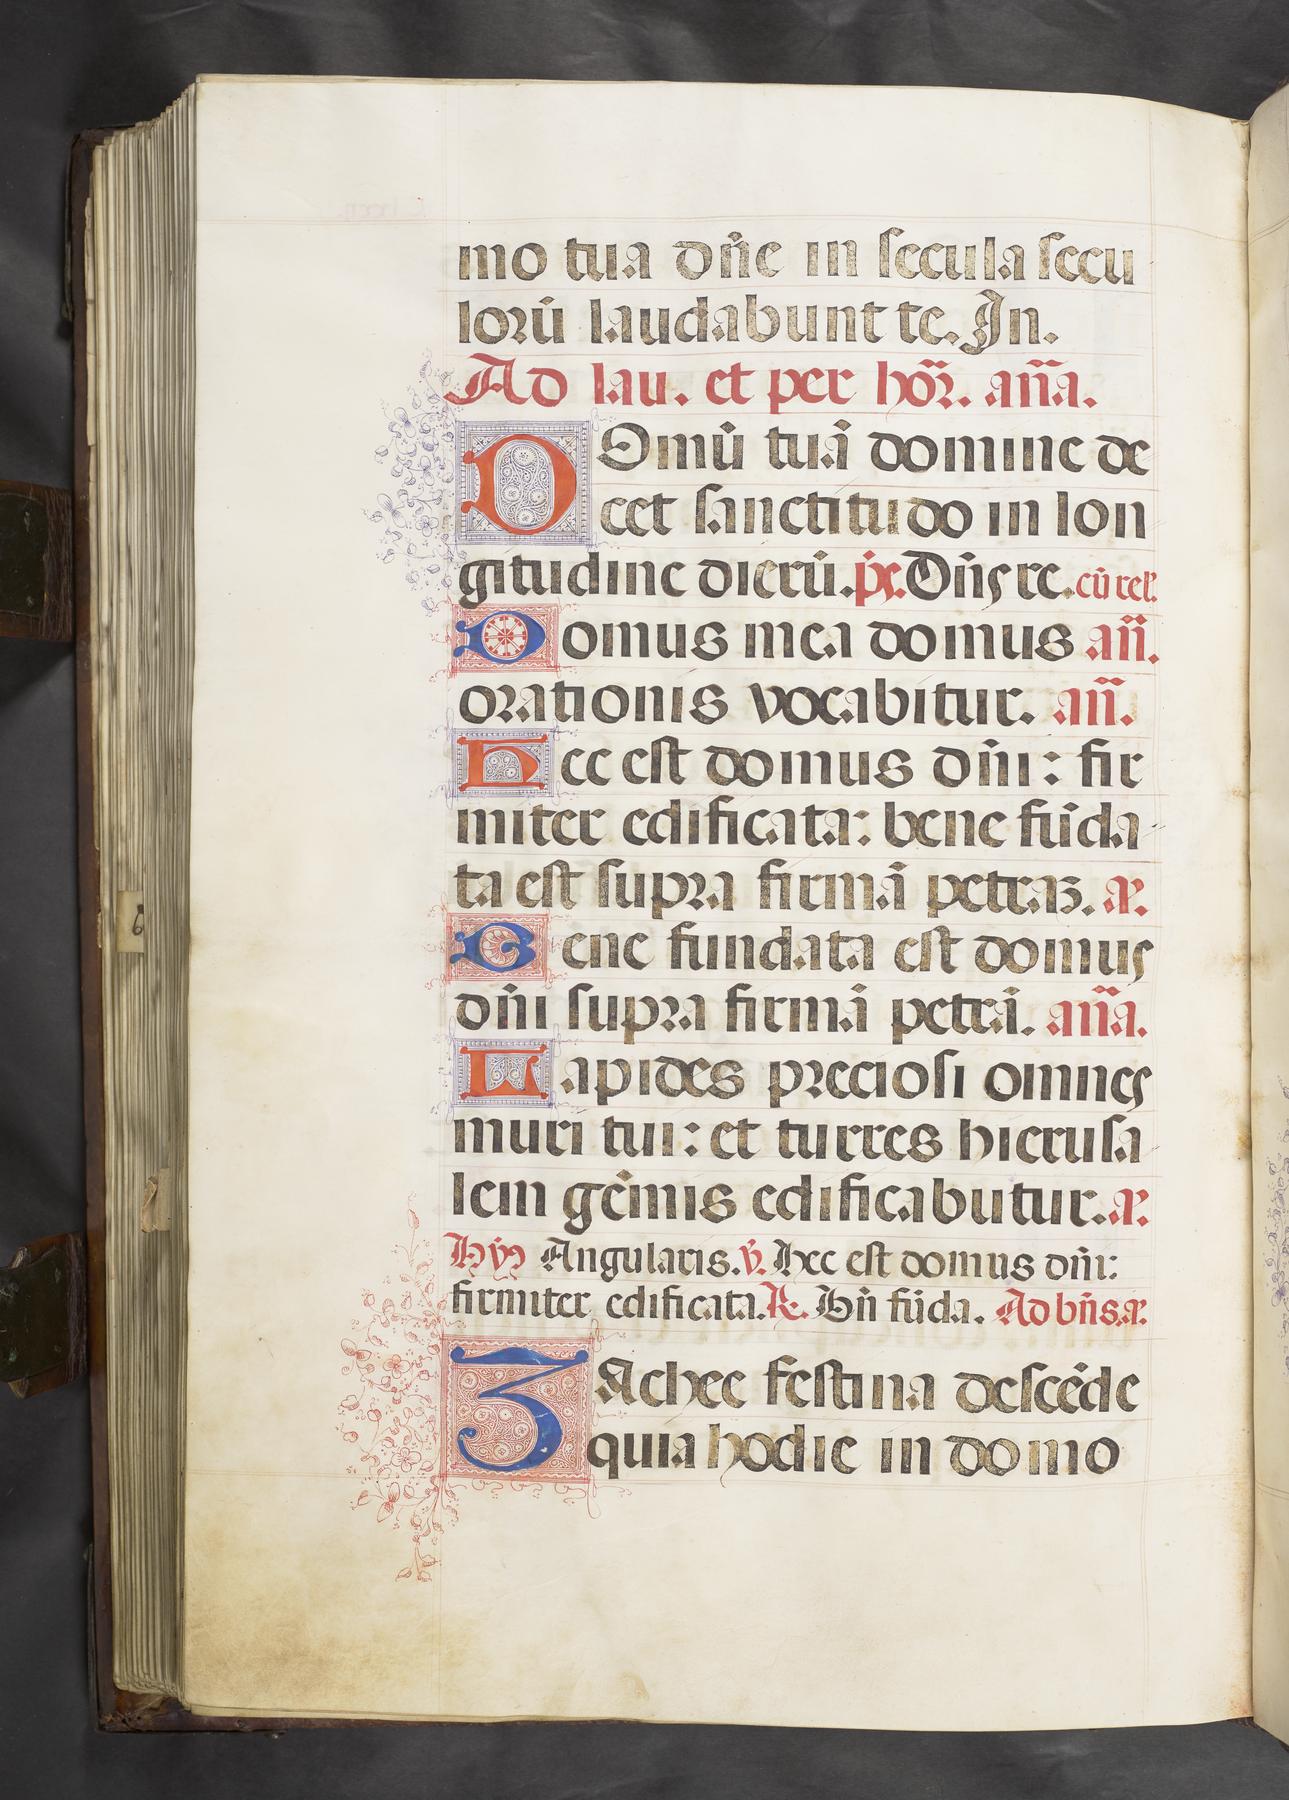 mo tua dñe in secula secu
lorũ laudabunt te. In.
Ad lau. et per hoř. aña.
DOmũ tuã domine de
cet sanctitudo in lon
gitudine dierũ. p̃s. Dñs re. cũ rel.
Domus mea domus añ.
orationis vocabitur. añ.
Hec est domus dñi: fir
miter edificata: bene fũda
ta est supra firmã petraȝ. a͂.
Bene fundata est domus
dñi supra firmã petrã. aña.
Lapides preciosi omnes
muri tui: et turres hierusa
lem gẽmis edificabutur. a͂.
Hỹ Angularis. ℣. Hec est domus dñi:
firmiter edificata. ℟. Bñ fũda. Ad bñs. a͂.
ZAchee festina descẽde
quia hodie in domo
6